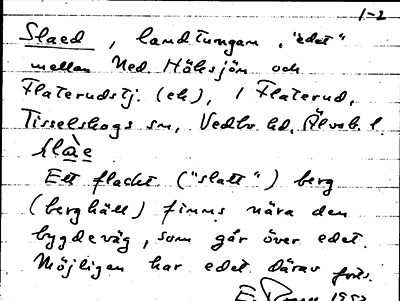 1-2
Slaed, landtungan, "edet"
mellan Ned. Höksjön och
Flaterudstj. (ek), i Flaterud,
Tisselskogs sn, Vedbo hd, Älvsb. l.
slàe
Ett flackt ("slatt") berg
(berghäll) finns nära den
bygdeväg, som går över edet.
Möjligen har edet därav forts.
E. 1953